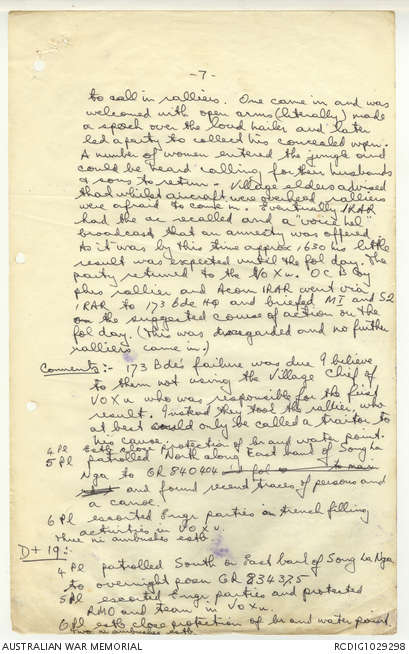 -7-
to call in ralliers. One came in and was
welcomed with open arms (literally) made
a speech over the loud hailer and later
led a party to collect his concealed wpn.
A number of women entered the jungle and
could be heard calling for their husbands
& sons to return - Village elders advised
that whilst aircraft were overhead ralliers
were afraid to come in. Eventually 1RAR
had the ac recalled and a "voice hel"
broadcast that an amnesty was offered
As it was by this time approx 1630 hrs little
result was expected until the fol day. The
party returned to the VO XU. OC B Coy
plus rallier and Acom 1RAR went via
1RAR to 173 Bde HQ and briefed MI and S2
on the suggested course of action on the
fol day. (This was disregarded and no further
ralliers came in.)
Comments:- 173 Bde's failure was due I believe
to them not using the Village Chief of
VO XU who was responsible for the first
result. Instead they took the rallier, who
at best could only be called a traitor to
his cause.
4 Pl estb close protection of br and water point.
5 Pl patrolled North along East bank of Song La
Nga to GR 840404
and found recent traces of persons and
a canoe.
6 Pl escorted Engr parties on trench filling
activities in VO XU.
Three ni ambushes estb.
D+19:-
4 Pl patrolled South on East bank of Song La Nga
to overnight posn GR 834375
5 Pl escorted Engr parties and protected
RMO and team in VO XU.
6 Pl estb close protection of br and water point
Two ni ambushes estb.
AUSTRALIAN WAR MEMORIAL
RCDIG1029298